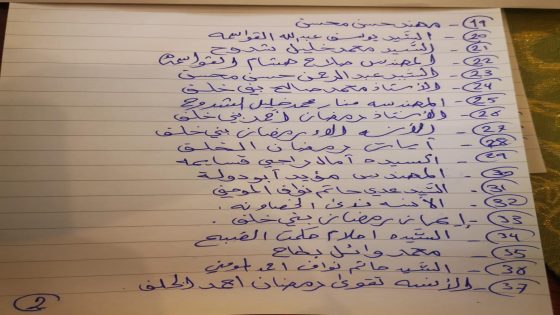 19 - مهند حسن محسن
20 - السيد يوسف عبدالله القواسمه
21 - السيد محمد خليل شدوح
22 - المهندس صلاح هشام القواسمة
23 - السيد عبد الرحمن حسني محسن
24 - الأستاذ محمد صالح بني خلف
25 - المهندسه منار محمد خليل الشدوح
26 - الأستاذ رمضان احمد بني خلف
27 - الآنسه الاء رمضان بني خلف
28 - آيات رمضان الخلف
29 - السيده آمال راجي قسايمه
30 - المهندس مؤيد أبو دولة
31 - السيد عدي حاتم نواف المومني
32 - الآنسه فدوى الخصاونه.
33 - إيمان رمضان بني خلف.
34 - السيده احلام حكمت القبيح
35 - محمد وائل بطاح
36 - السيد حاتم نواف احمد المومني
37 - الآنسه تقوى رمضان احمد الخلف
2